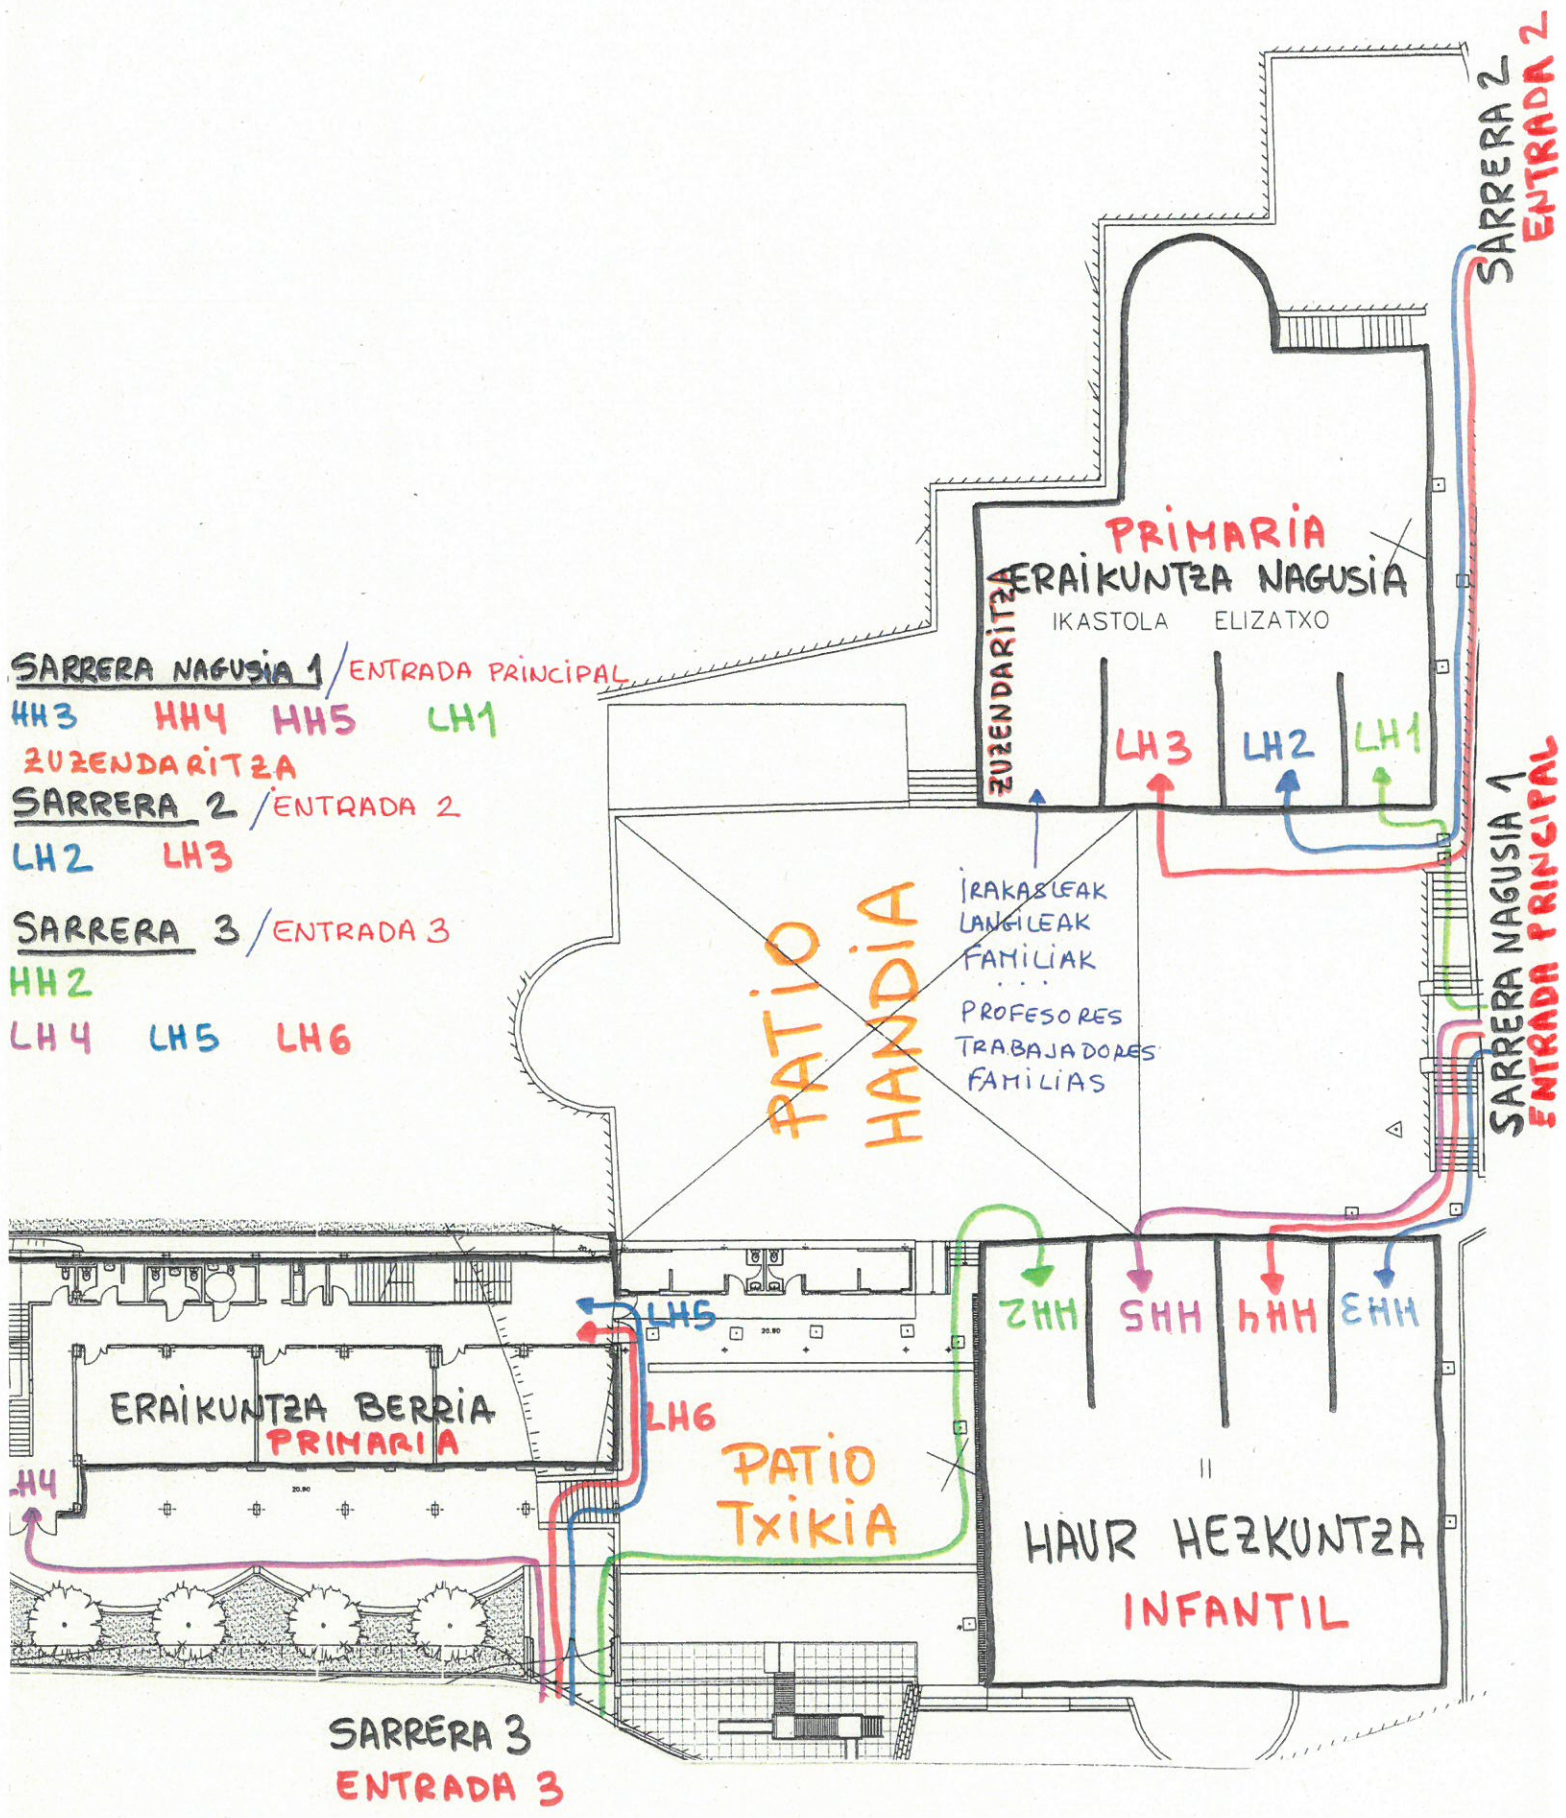 SARRERA 2
ENTRADA 2
PRIMARIA
ERAIKUNTZA NAGUSIA
IKASTOLA ELIZATXO
ZUZENDARITZA
LH3 LH2 LH1
SARRERA NAGUSIA 1 / ENTRADA PRINCIPAL
HH3 HH4 HH5 LH1
ZUZENDARITZA
SARRERA 2 / ENTRADA 2
LH2 LH3
SARRERA 3 / ENTRADA 3
HH2
LH4 LH5 LH6
PATIO
HANDIA
IRAKASLEAK
LANGILEAK
FAMILIAK
...
PROFESORES
TRABAJADORES
FAMILIAS
SARRERA NAGUSIA 1
ENTRADA PRINCIPAL
HH2 HH5 HH4 HH3
LH5
20.90
LH6
ERAIKUNTZA BERRIA
PRIMARIA
LH4
20.90
PATIO
TXIKIA
II
HAUR HEZKUNTZA
INFANTIL
SARRERA 3
ENTRADA 3